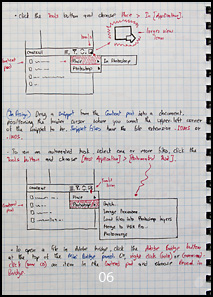 · click the Tools button and choose Place > In [Application].
Tools
Content
Place > In Photoshop
Photoshop >
(InDesign) Drag a Snippet from the Content pod into a document,
positioning the cursor where you want the upper-left corner
of the snippet to be. Snippet files have the file extension .IDMS or
.INDS.
· To run an automated task select one or more files, click the
Tools button and choose [Host Application] > [Automated Task].
Tools
Content
Batch...
Image Processor...
Load files into Photoshop layers
Merge to HDR Pro...
Photomerge...
· To open a file in Adobe Bridge, click the Adobe Bridge button
at the top of the Mini Bridge panel. Or, right click (win) or Command
click (mac os) an item in the Content pod and choose Reveal in
Bridge.
06